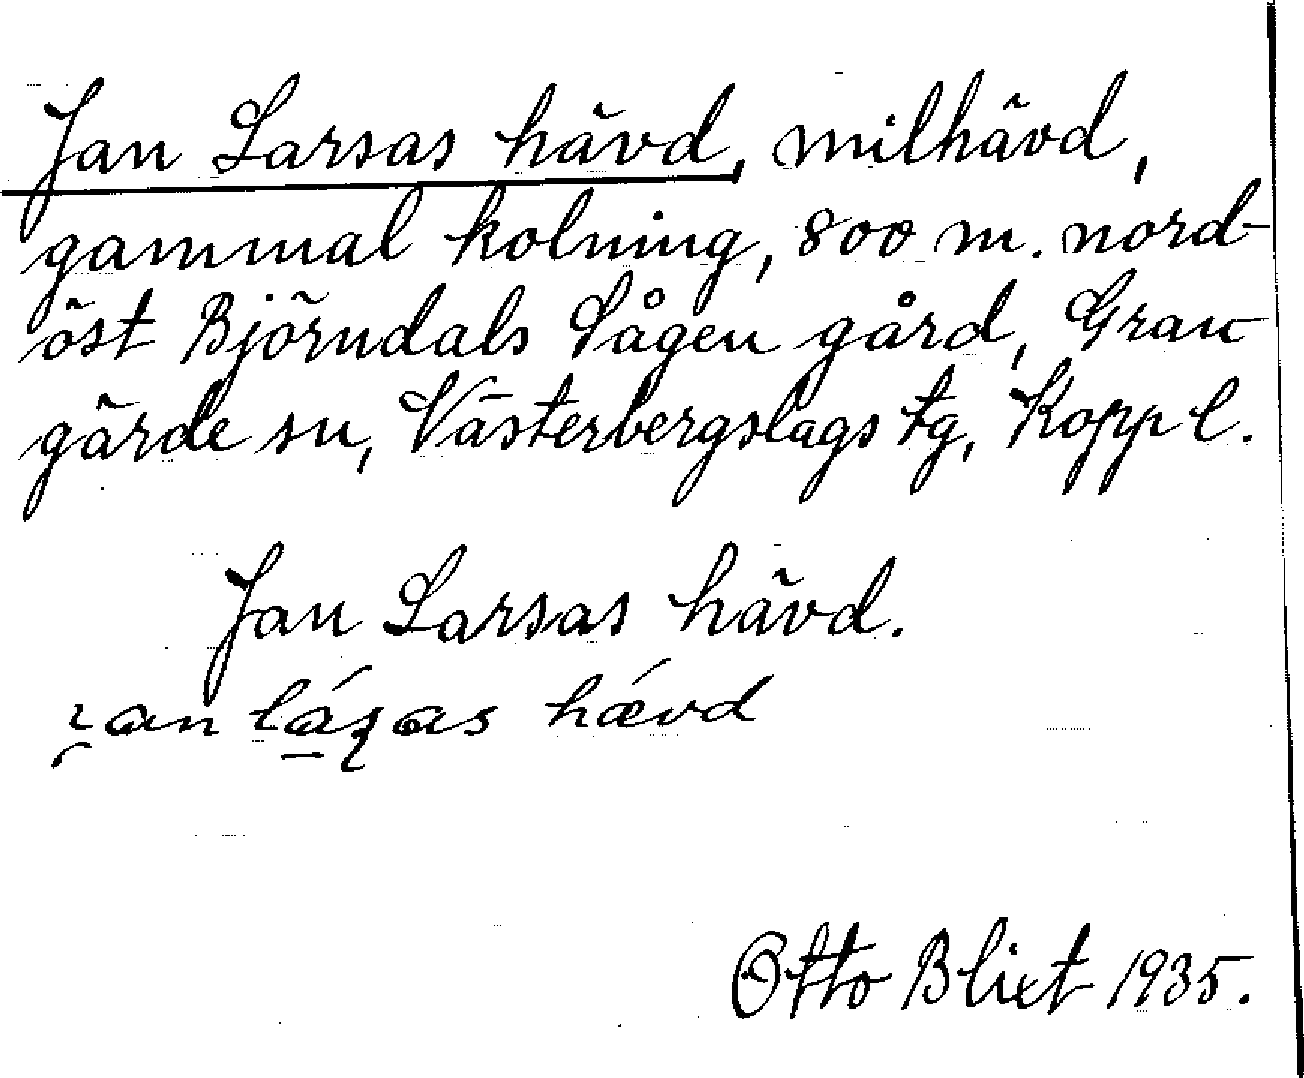 Jan Larsas hävd, milhävd,
gammal kolning, 800 m. nord-
öst Björndals Sågen gård, Gran
gärde sn, Västerbergslags tg, Kopp l.
Jan Larsas hävd.
hǽvd
Otto Blixt 1935.